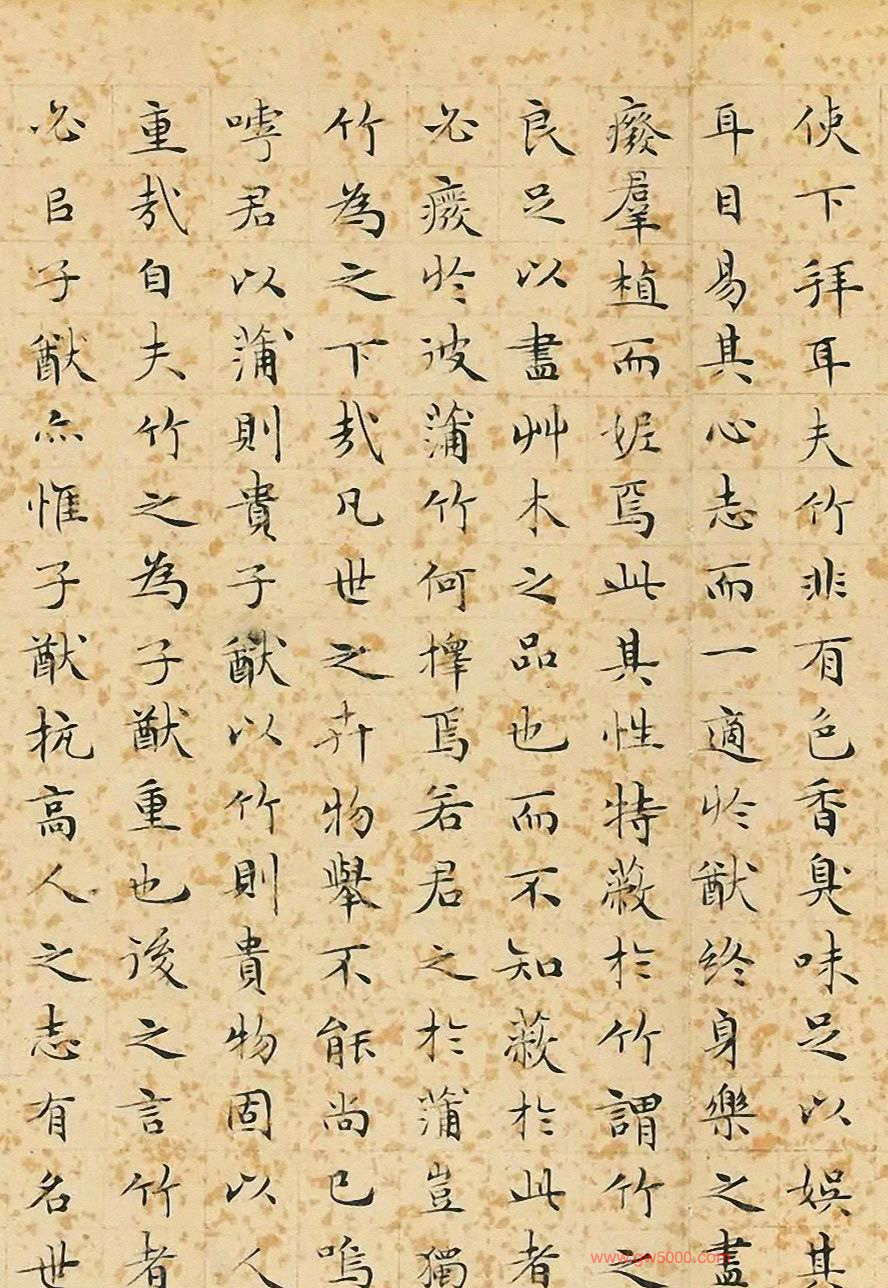 使下拜耳夫竹非有色香臭味足以娛其
耳目易其心志而一適於猷終身樂之盡
癈羣植而妮焉此其性特蔽於竹謂竹之
良足以盡艸木之品也而不知蔽於此者
必癈於彼蒲竹何擇焉若君之於蒲豈獨
竹為之下哉凡世之卉物舉不能尚已嗚
嘑君以蒲則貴子猷以竹則貴物固以人
重哉自夫竹之為子猷重也後之言竹者
必㠯子猷亦惟子猷抗高人之志有名世
www.gw5000.com